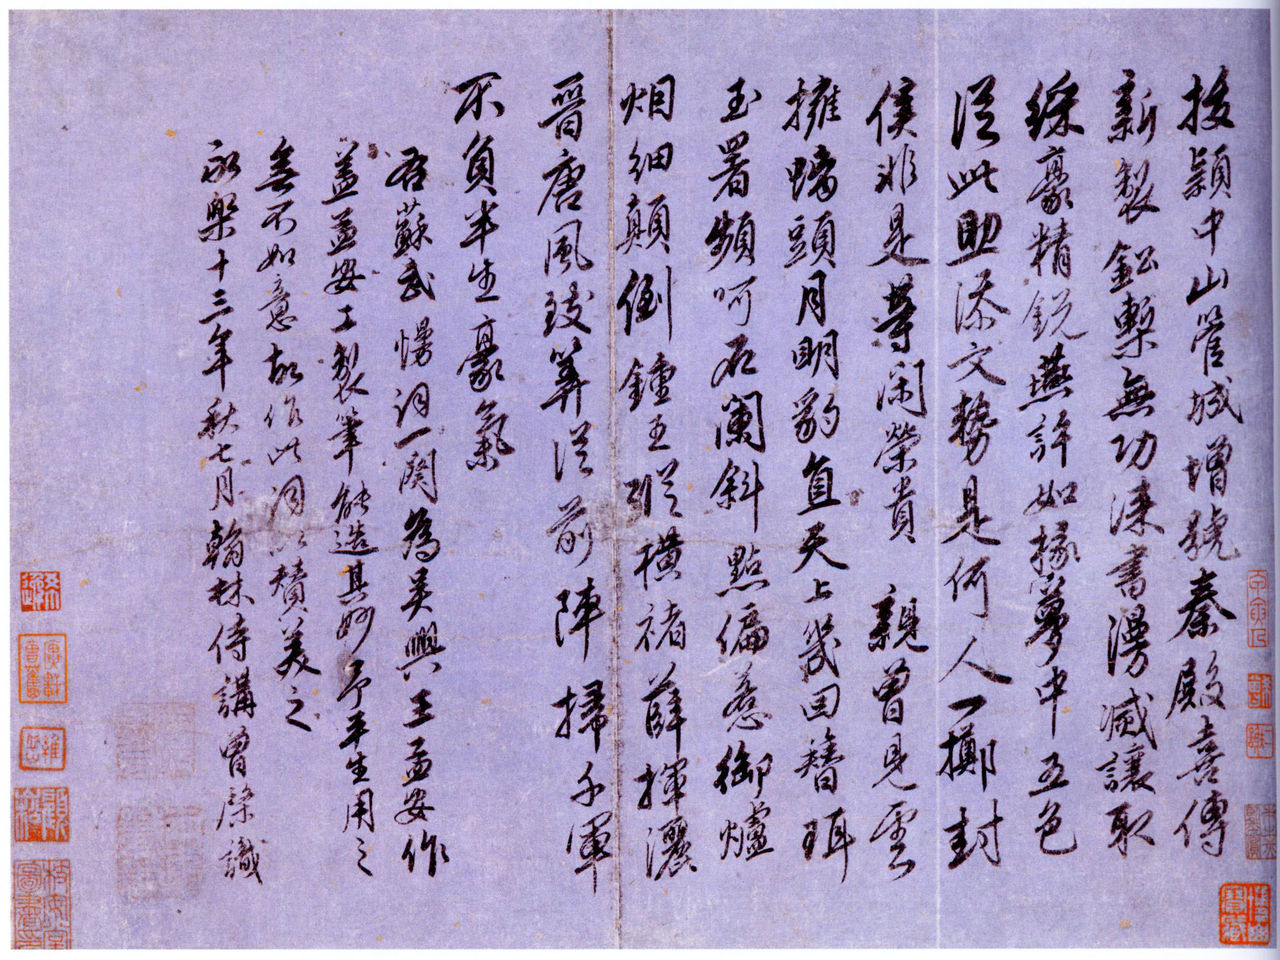 拔颖中山管城增號秦殿喜傳
新製鉛槧無功漆書漫滅讓取
綵豪精鋭燕許如椽夢中五色
從此助添文勢是何人一擲封
侯非是等闲榮貴　親曾見雲
擁螭頭月明豹直天上幾回簪珥
玉署頻呵石闌斜點偏惹御爐
烟細顛倒鍾王從横褚薛揮灑
晉唐風致筭從前陣掃千軍
不負半生豪氣
右蘇武慢詞一闋為吴興王孟安作
盖孟安工製筆能造其妙予平生用之
無不如意故作此词以赞美之
永樂十三年秋七月翰林侍講曾棨識